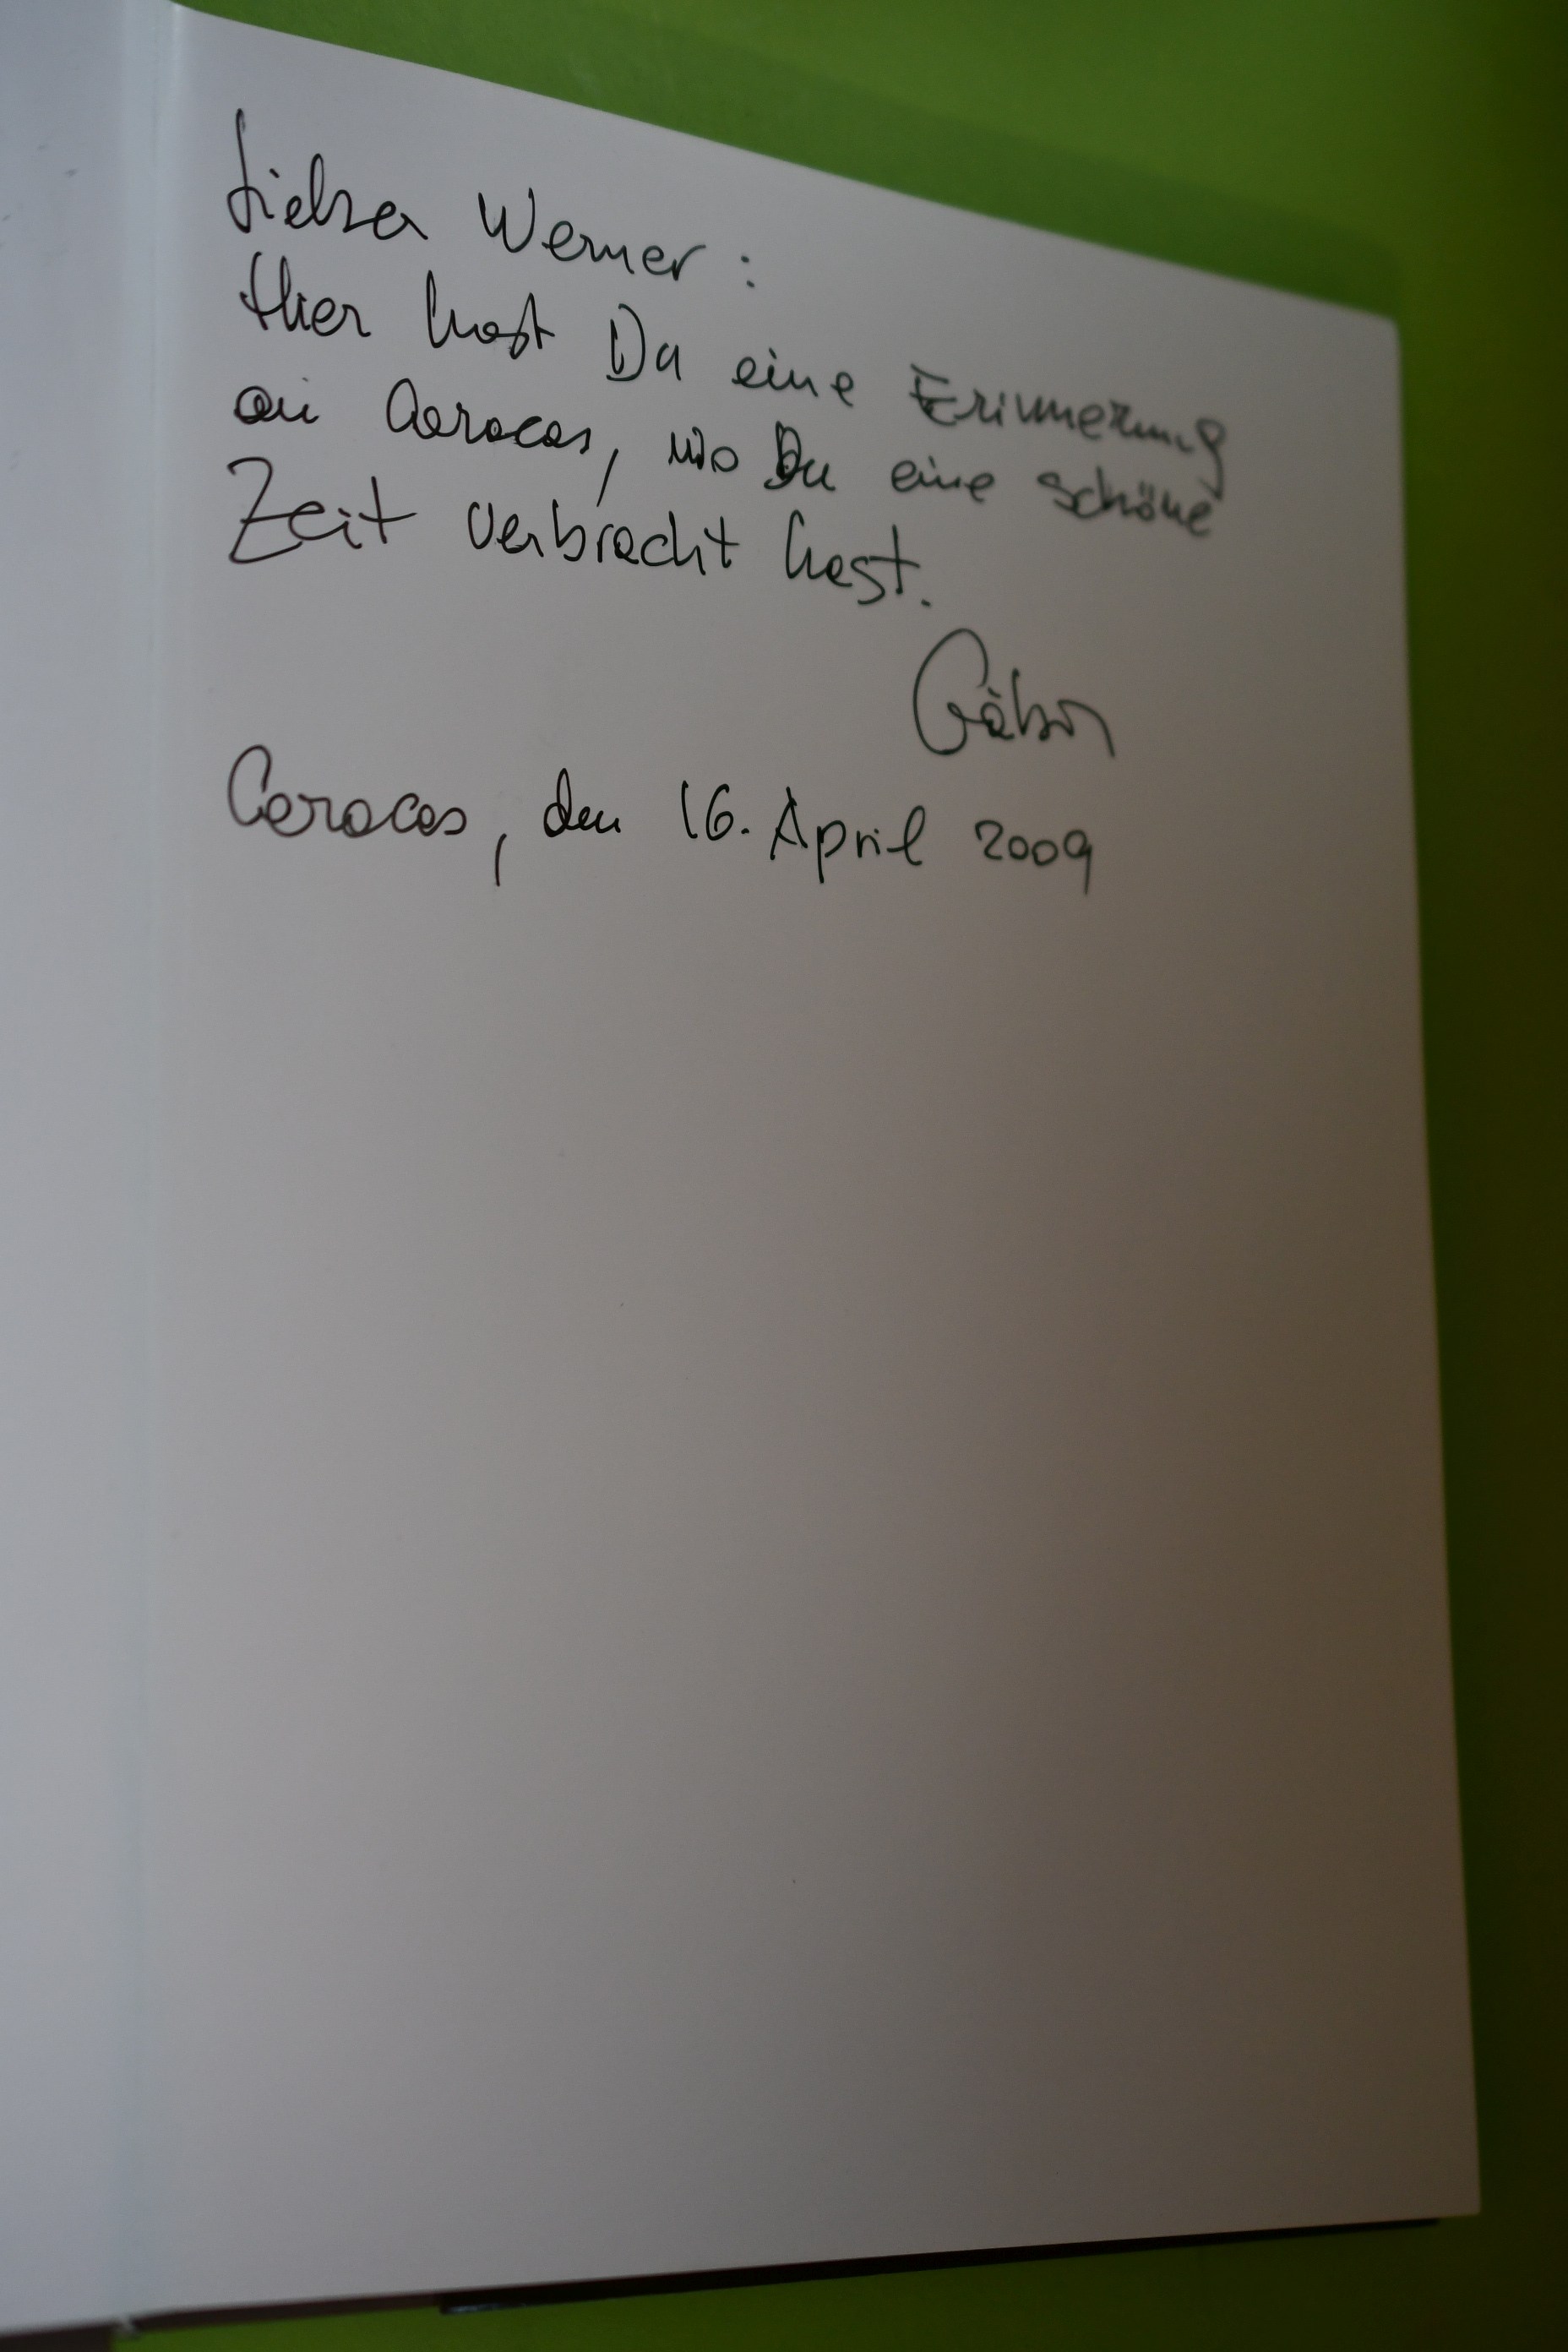 Lieber Werner:
Hier hast Du eine Erinnerung
an Caracas, wo Du eine schöne
Zeit verbracht hast.
Gábor
Caracas, den 16. April 2009